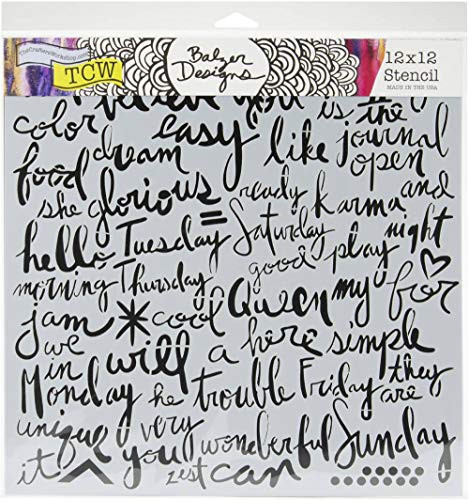 TheCraftersWorkshop.com
TCW
Balzer
Designs
12x12
Stencil
MADE IN THE USA
you is the
color easy like journal
food dream open
she glorious ready karma and
hello Tuesday Saturday night
good play
morning Thursday
jam cool Queen my for
we will a here simple
in
Monday he trouble Friday they
are
unique very
it you wonderful Sunday
zest can